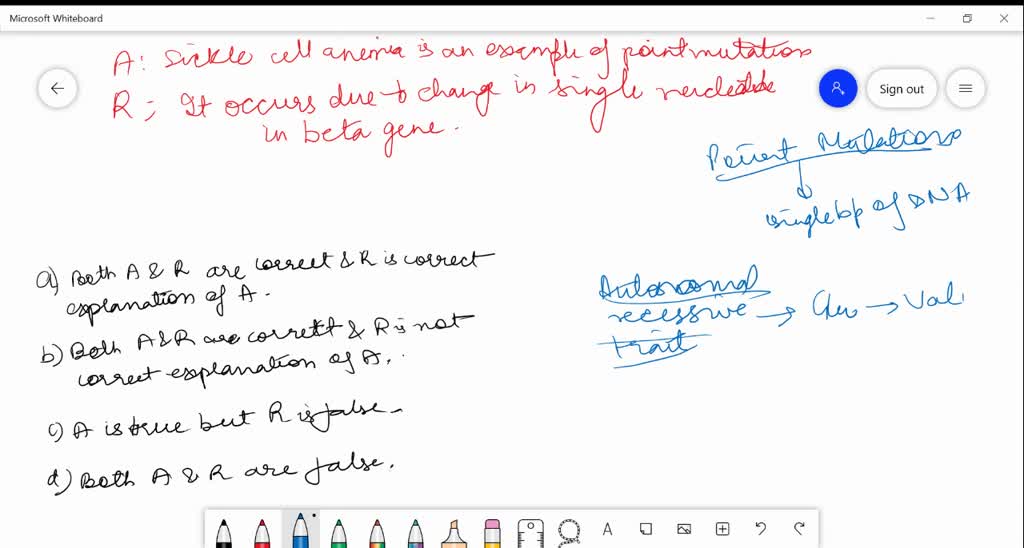 Microsoft Whiteboard
A: Sickle cell anemia is an example of point mutations
R: It occurs due to change in single
in beta gene.
Sign out
Point Mutations
single bp of DNA
a) Both A & R are correct & R is correct
explanation of A.
b) Both A & R are correct & R is not
correct explanation of A.
c) A is true but R is false.
d) Both A & R are false.
Autosomal
recessive → Glu → Val
trait
A